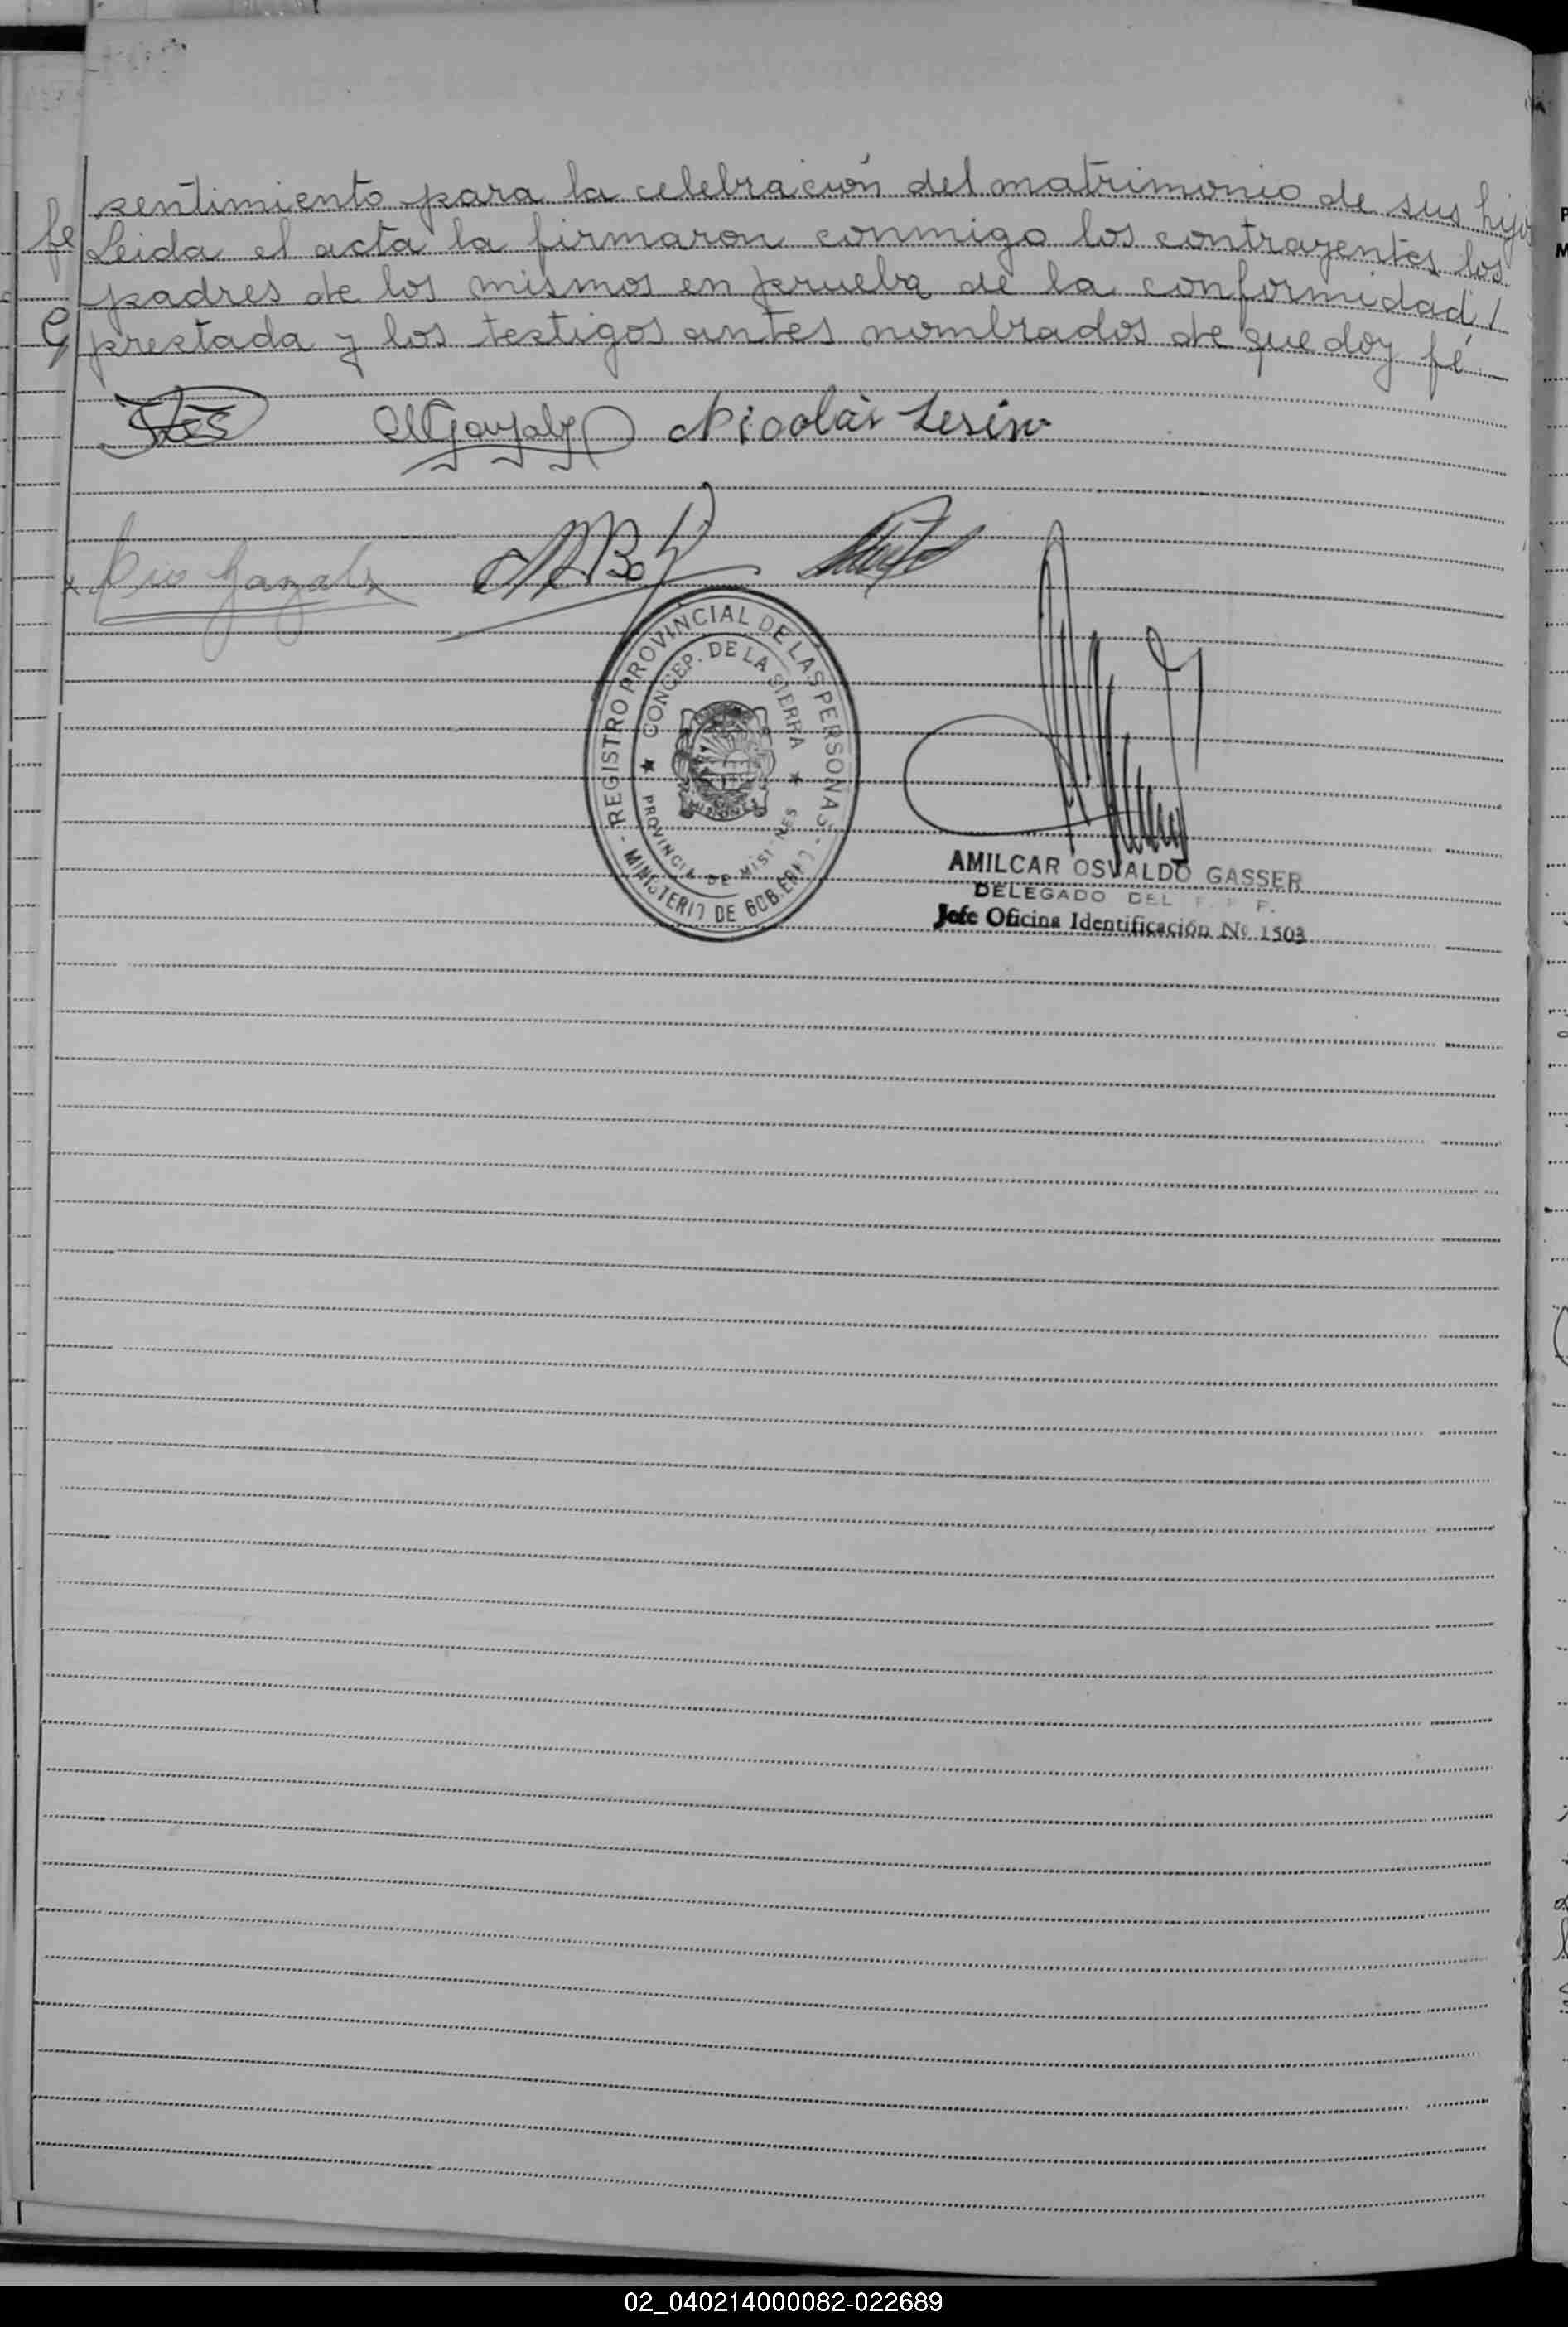 sentimiento para la celebración del matrimonio de sus hijos
Leida el acta la firmaron conmigo los contrayentes, los
padres de los mismos en prueba de la conformidad /
prestada y los testigos antes nombrados de que doy fé.—
fe
Nicolás
REGISTRO PROVINCIAL DE LAS PERSONAS -
CONCEP. DE LA SIERRA
MISIONES
PROVINCIA DE MISIONES
- MINISTERIO DE GOBIERNO
AMILCAR OSVALDO GASSER
DELEGADO DEL
Jefe Oficina Identificación Nº 1503
02_040214000082-022689